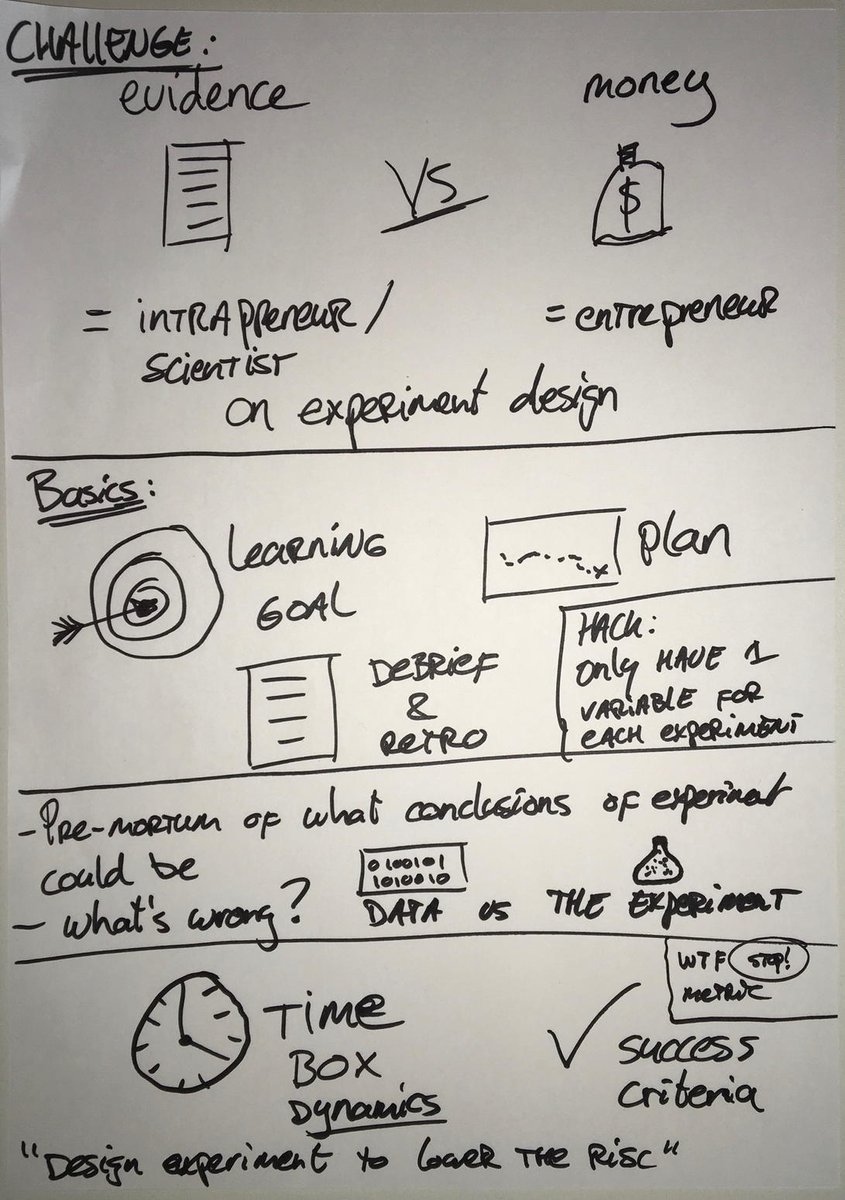 CHALLENGE:
evidence
money
VS
$
= INTRAPPreneur /
SCIENTIST
= entrepreneur
on experiment design
Basics:
Learning
GOAL
Plan
DeBRIEF
&
RETRO
HACK:
Only HAVE 1
VARIABLE FOR
EACH EXPERIMENT
- PRE-MORTUM of what conclusions of experiment
could be
- what's wrong?
0100101
1010010
DATA vs THE EXPERIMENT
WTF STOP!
METRIC
TIME
BOX
Dynamics
success
criteria
"Design experiment to lower THE RISC"